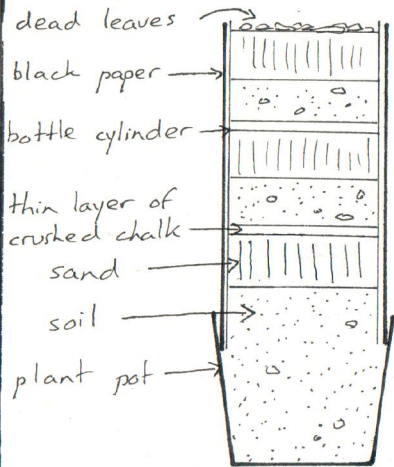 dead leaves
black paper
bottle cylinder
thin layer of
crushed chalk
sand
soil
plant pot